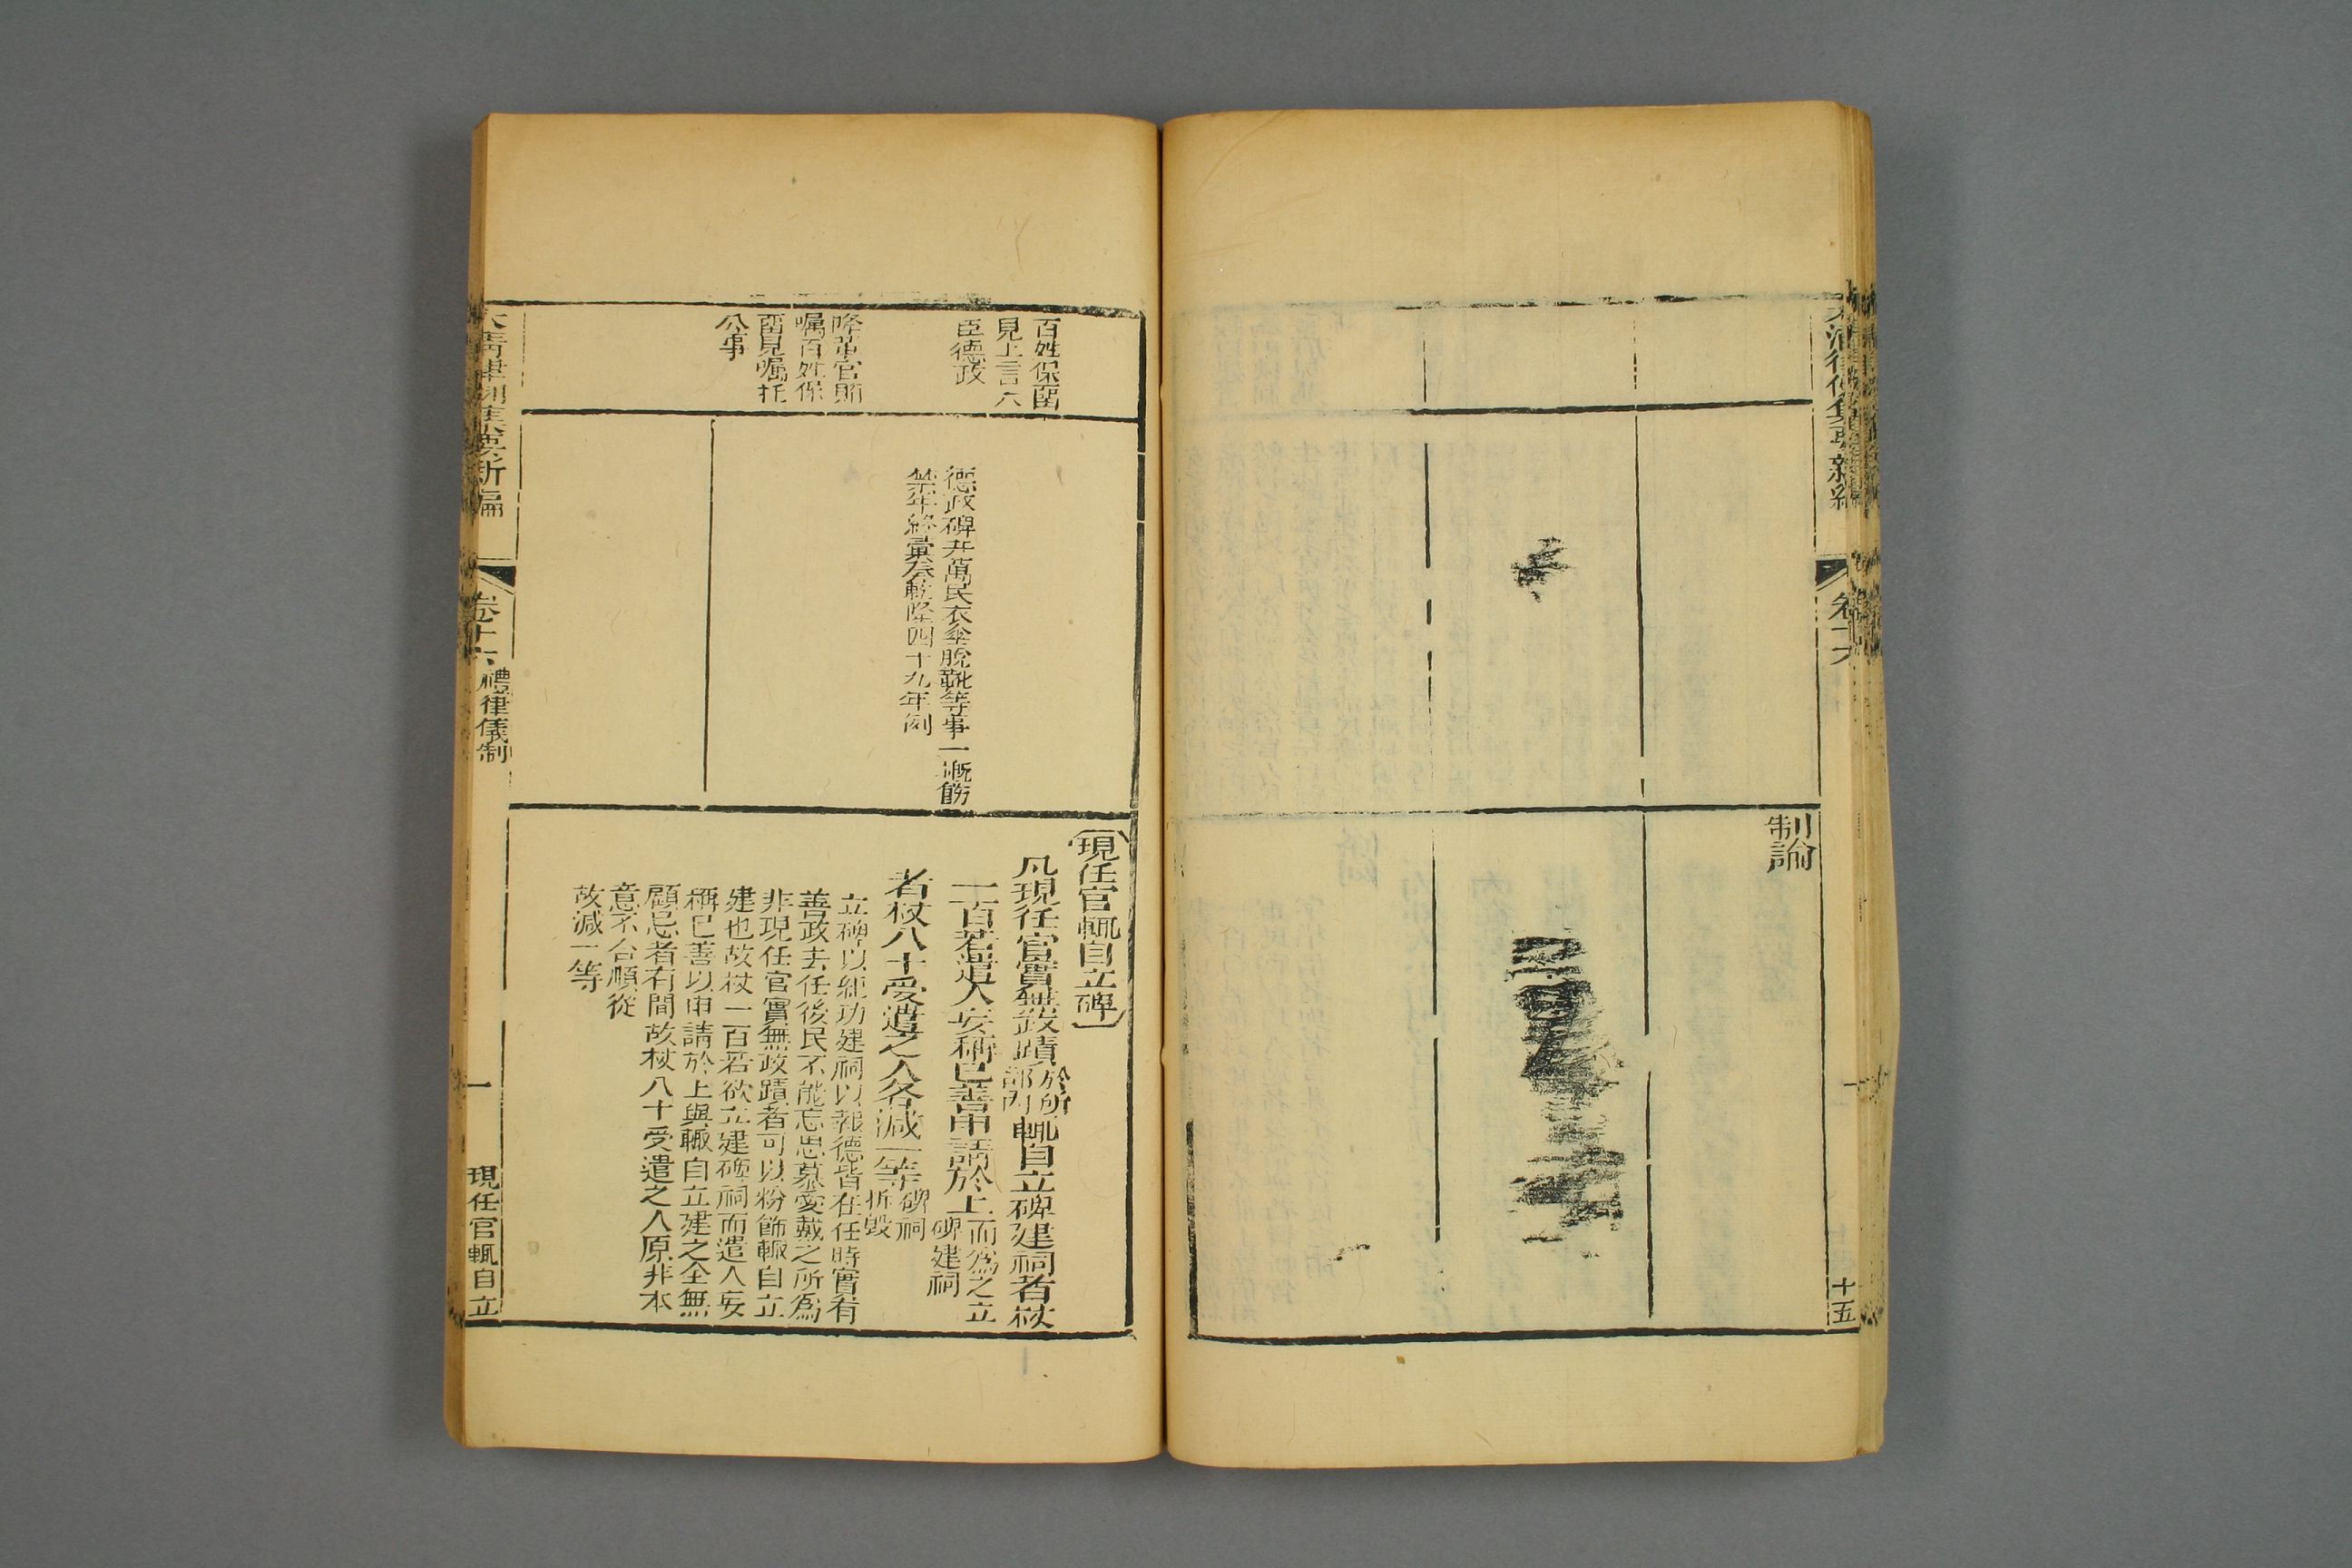 制諭
十五
百姓保留
見上言大
臣德政
降革官賄
囑百姓保
留見囑托
公事
德政碑并萬民衣傘脫靴等事一槪飭
禁年終彙奏乾隆四十九年例
現任官輒自立碑
凡現任官實無政蹟於所部內輒自立碑建祠者杖
一百若遣人妄稱已善申請於上而爲之立碑建祠
者杖八十受遣之人各減一等碑祠拆毀
立碑以紀功建祠以報德皆在任時實有
善政去任後民不能忘思慕愛戴之所爲
非現任官實無政蹟者可以粉飾輒自立
建也故杖一百若欲立建碑祠而遣人妄
稱已善以申請於上與輒自立建之全無
顧忌者有間故杖八十受遣之人原非本
意不合順從
故減一等
大淸律例集要新編
卷十六
禮律儀制
一
現任官輒自立